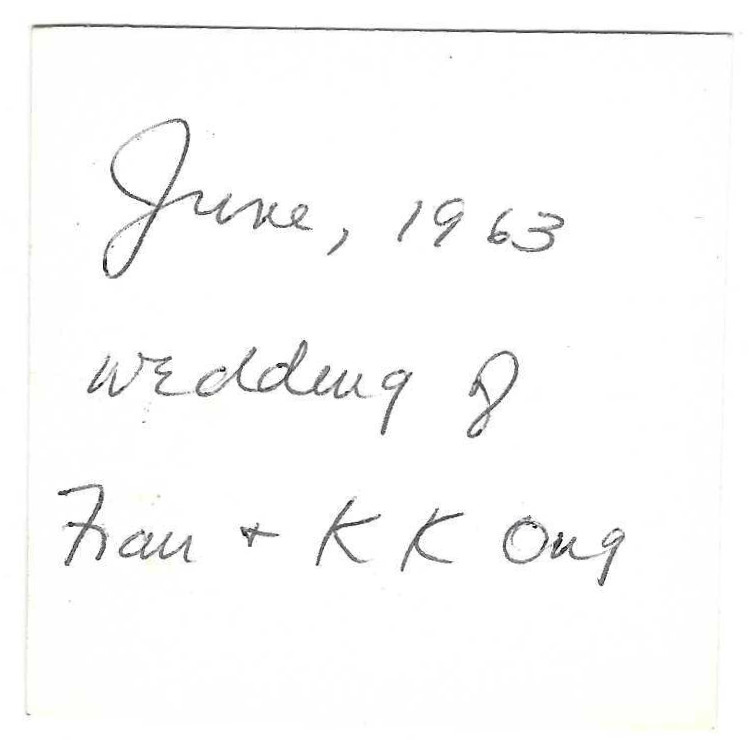 June, 1963
Wedding of
Fran + K K Ong